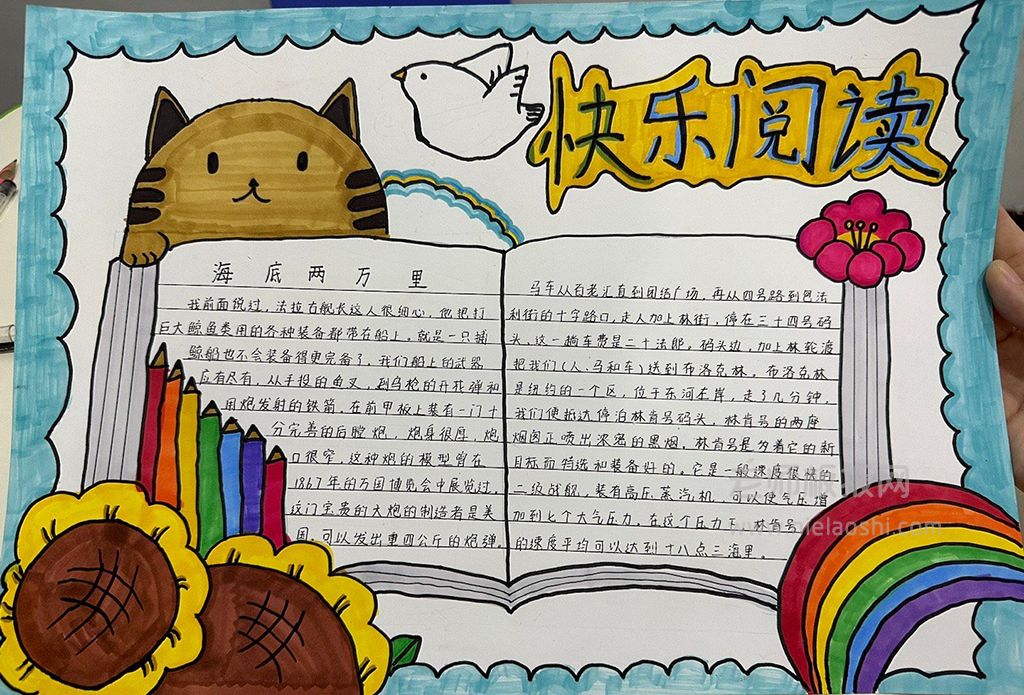 快乐阅读
海底两万里
我前面说过,法拉古舰长这人很细心,他把打
巨大鲸鱼类用的各种装备都带在船上。就是一只捕
鲸船也不会装备得更完备了。我们船上的武器
应有尽有,从手投的鱼叉,到鸟枪的开花弹和
用炮发射的铁箭。在前甲板上装有一门十
分完善的后膛炮,炮身很厚,炮
口很窄,这种炮的模型曾在
1867年的万国博览会中展览过,
这门宝贵的大炮的制造者是美
国,可以发出重四公斤的炮弹。
马车从百老汇直到团结广场,再从四号路到包法
利街的十字路口,走入加上林街,停在三十四号码
头。这一趟车费是二十法郎。码头边,加上林轮渡
把我们(人、马和车)送到布洛克林。布洛克林
是纽约的一个区,位于东河左岸,走了几分钟,
我们便抵达停泊林肯号码头,林肯号的两座
烟囱正喷出浓密的黑烟。林肯号是为着它的新
目标而特选和装备好的。它是一般速度很快的
二级战舰,装有高压蒸汽机,可以使气压增
加到七个大气压力,在这个压力下,林肯号
的速度平均可以达到十八点三海里。